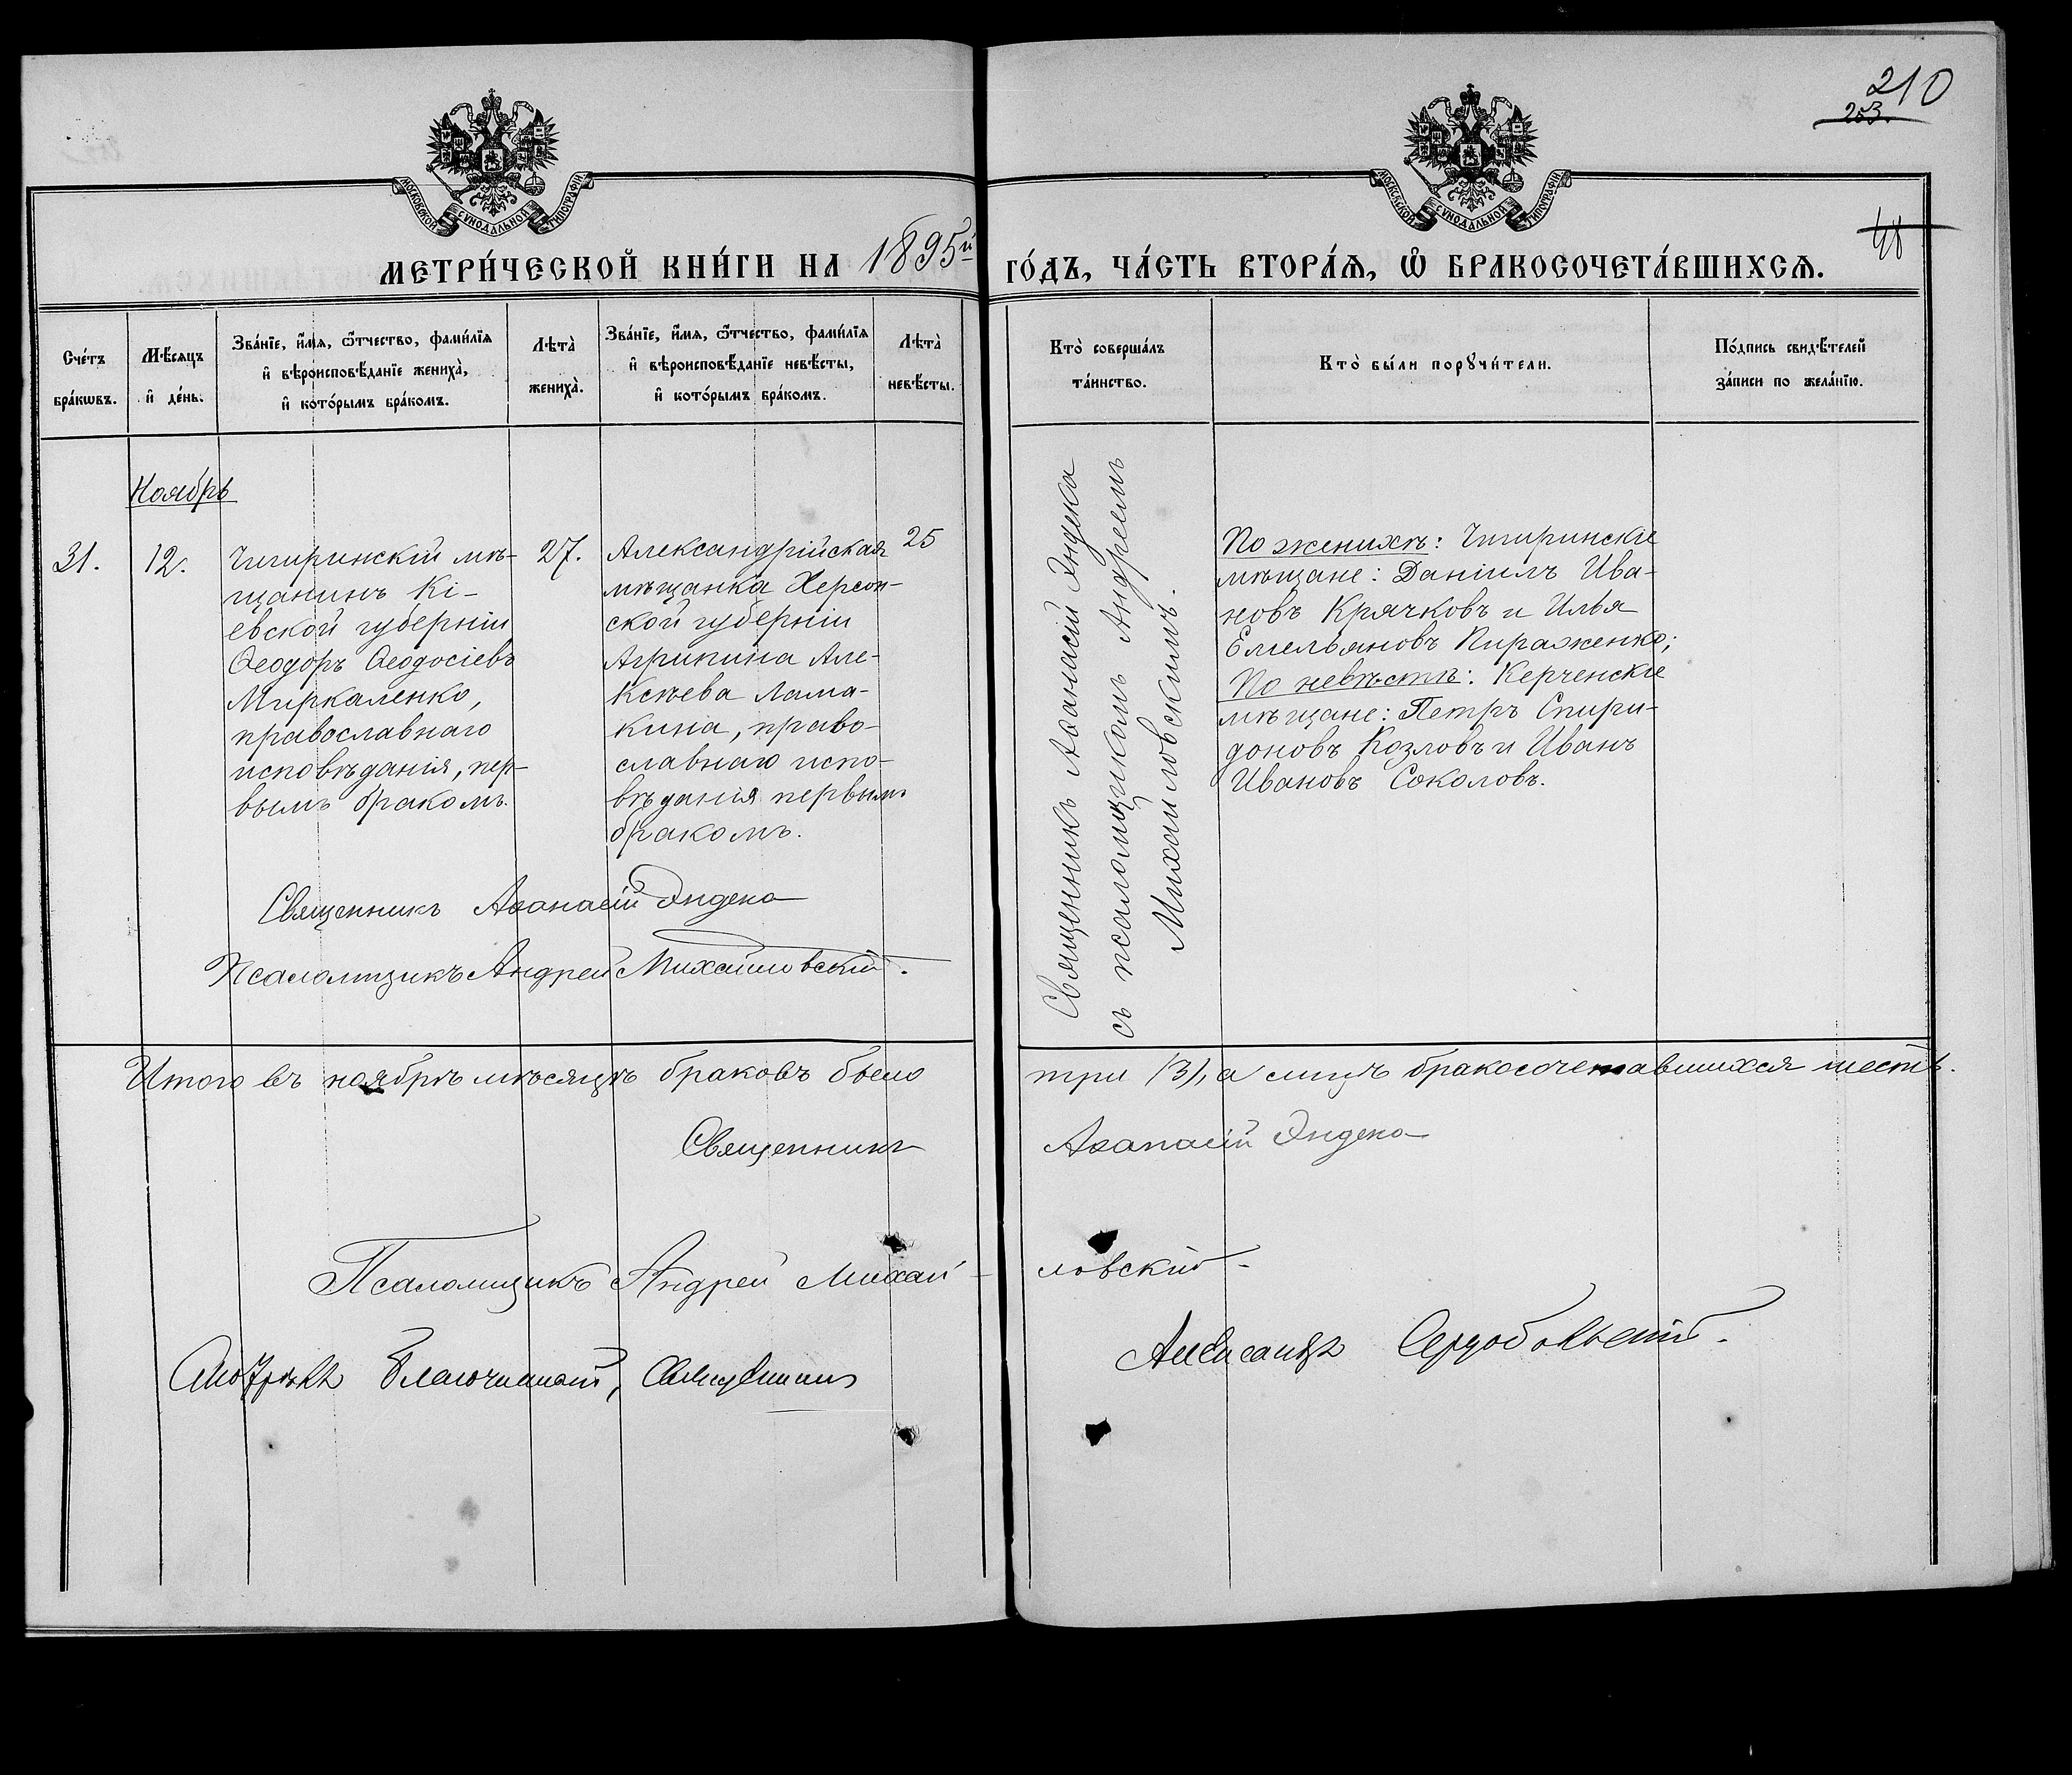 210
253.
48
МОСКОВСКОЙ СѴНОДАЛЬНОЙ ТИПОГРАФІИ
МОСКОВСКОЙ СѴНОДАЛЬНОЙ ТИПОГРАФІИ
МЕТРИ́ЧЕСКОЙ КНИ́ГИ НА 1895й ГО́ДЪ, ЧА́СТЬ ВТОРА́Ѧ, Ѡ БРАКОСОЧЕТА́ВШИХСѦ.
Сче́тъ
бра́кѡвъ.
Мѣ́сяцъ
и҆ де́нь.
Зва́нїе, и҆́мѧ, ѻ҆́тчество, фами́лїѧ
и҆ вѣроисповѣ́данїе жениха̀,
и҆ кото́рымъ бра́комъ.
Лѣта̀
жениха̀.
Зва́нїе, и҆́мѧ, ѻ҆́тчество, фами́лїѧ
и҆ вѣроисповѣ́данїе невѣ́сты,
и҆ кото́рымъ бра́комъ.
Лѣта̀
невѣ́сты.
Кто̀ соверша́лъ
та́инство.
Кто̀ бы́ли порꙋчи́тели.
По́дпись свидѣ́телей
за́писи по жела́нїю.
Ноябрь
31.
12.
Чигиринскій мѣ-
щанинъ Кі-
евской губерніи
Ѳеодоръ Ѳеодосіевъ
Миркаленко,
православнаго
исповѣданія, пер-
вымъ бракомъ.
27.
Александрійская
мѣщанка Херсон-
ской губерніи
Агрипина Але-
ксѣева Лама-
кина, право-
славнаго испо-
вѣданія первымъ
бракомъ.
25
Священникъ Аѳанасій Эндека
съ псаломщикомъ Андреемъ
Михайловскимъ.
По женихѣ: Чигиринскіе
мѣщане: Даніилъ Ива-
новъ Крячковъ и Илья
Емельяновъ Пираженко;
По невѣстѣ: Керченскіе
мѣщане: Петръ Спири-
доновъ Козловъ и Иванъ
Ивановъ Соколовъ.
Священникъ Аѳанасій Эндека
Псаломщикъ Андрей Михайловскій.
Итого въ ноябрѣ мѣсяцѣ браковъ было три (3), а лицъ бракосочетавшихся шесть.
Священникъ Аѳанасій Эндека
Псаломщикъ Андрей Михай-ловскій
Смотрѣлъ Благочинный, Священникъ Александръ Сердобольскій.